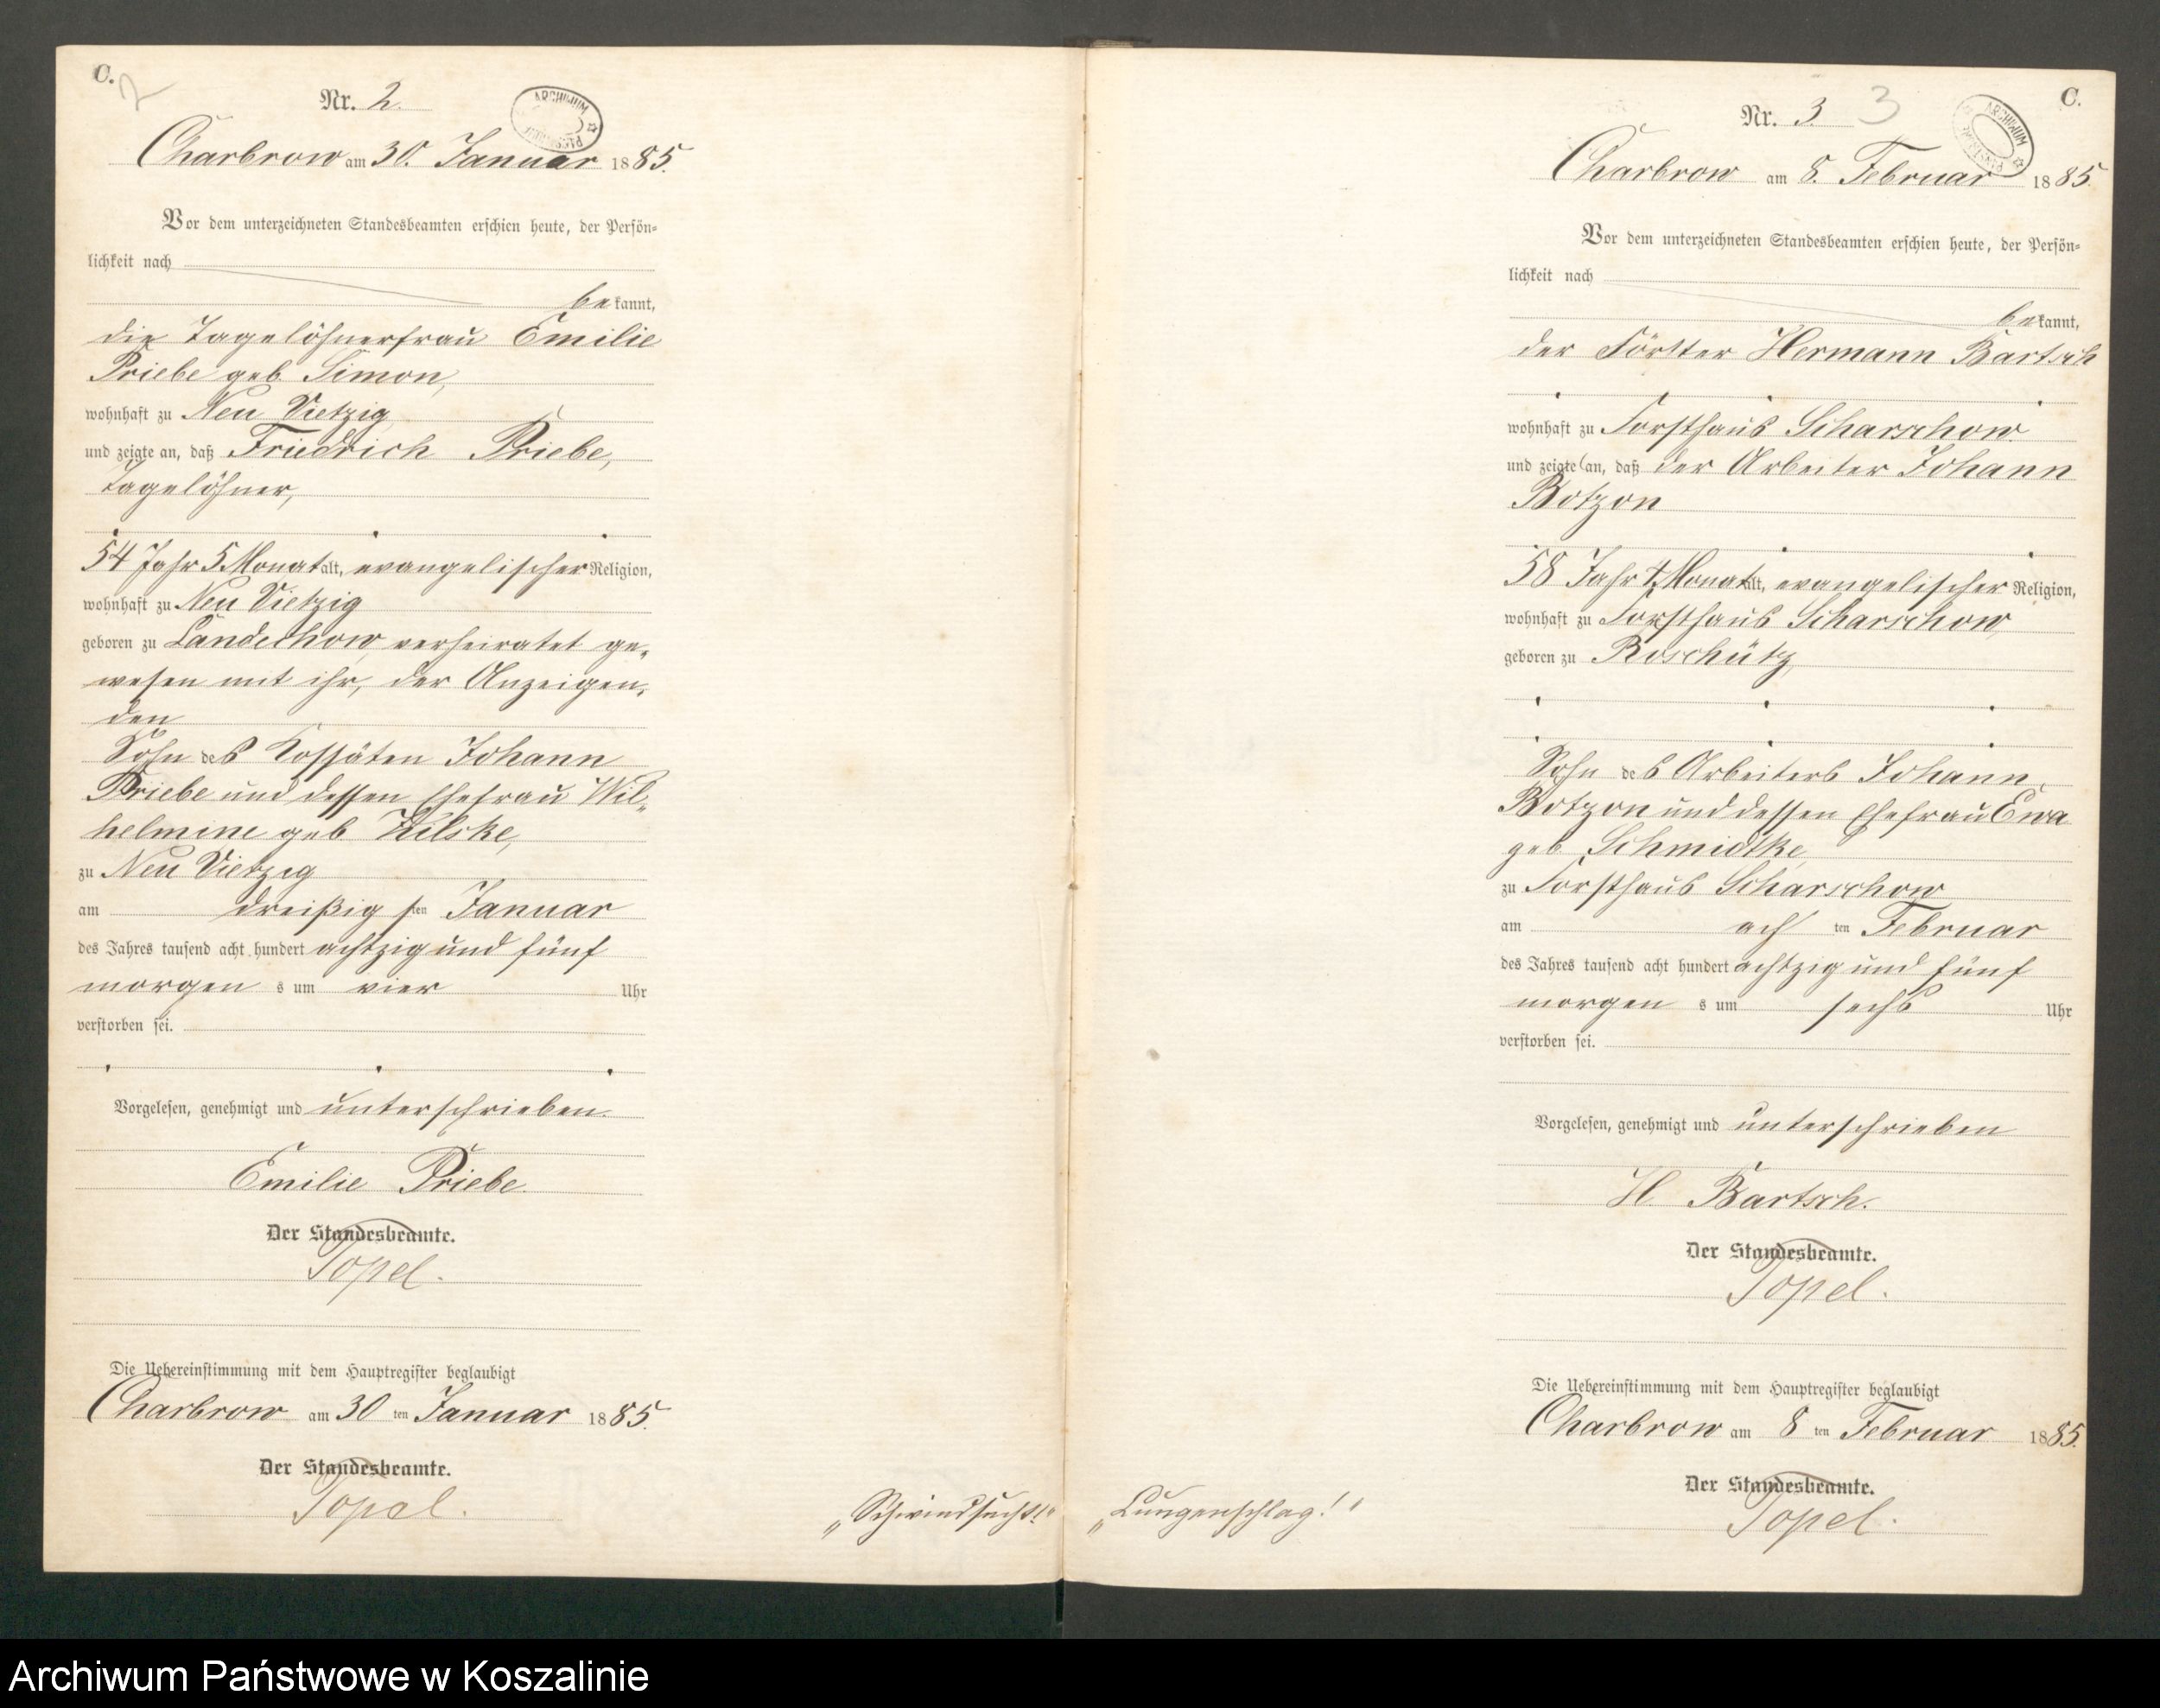 C.
2
Nr. 2.
ARCHIWUM
Charbrow am 30. Januar 1885.
Vor dem unterzeichneten Standesbeamten erschien heute, der Persön-
lichkeit nach
be kannt,
die Tagelöhnerfrau Emilie
Priebe geb. Simon,
wohnhaft zu Neu Vietzig
und zeigte an, daß Friedrich Priebe,
Tagelöhner,
54 Jahr 5 Monat alt, evangelischer Religion,
wohnhaft zu Neu Vietzig
geboren zu Landechow, verheiratet ge-
wesen mit ihr, der Anzeigen-
den
Sohn des Kossäten Johann
Priebe und dessen Ehefrau Wil-
helmine geb
zu Neu Vietzig
am dreißigsten Januar
des Jahres tausend acht hundert achtzig und fünf
morgen s um vier Uhr
verstorben sei.
Vorgelesen, genehmigt und unterschrieben.
Emilie Priebe.
Der Standesbeamte.
Topel.
Die Uebereinstimmung mit dem Hauptregister beglaubigt
Charbrow am 30 ten Januar 1885.
Der Standesbeamte.
Topel.
„Schwindsucht!“
C.
Nr. 3. 3
ARCHIWUM
Charbrow am 8. Februar 1885.
Vor dem unterzeichneten Standesbeamten erschien heute, der Persön-
lichkeit nach
be kannt,
der Förster Hermann Bartsch
wohnhaft zu Forsthaus Scharschow
und zeigte an, daß der Arbeiter Johann
Botzon
58 Jahr Monat alt, evangelischer Religion,
wohnhaft zu Forsthaus Scharschow
geboren zu Roschütz,
Sohn des Arbeiters Johann
Botzon und dessen Ehefrau Ewa
geb Schmidtke,
zu Forsthaus Scharschow
am ach ten Februar
des Jahres tausend acht hundert achtzig und fünf
morgen s um sechs Uhr
verstorben sei.
Vorgelesen, genehmigt und unterschrieben
H. Bartsch.
Der Standesbeamte.
Topel.
Die Uebereinstimmung mit dem Hauptregister beglaubigt
Charbrow am 8 ten Februar 1885.
Der Standesbeamte.
Topel.
„Lungenschlag!“
Archiwum Państwowe w Koszalinie